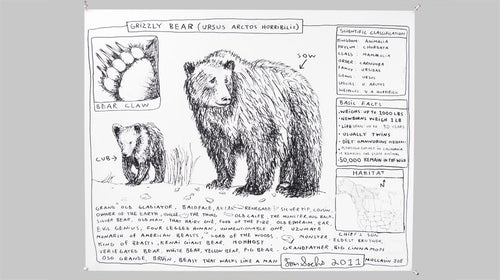 GRIZZLY BEAR (URSUS ARCTOS HORRIBILIS)
BEAR CLAW
SOW
CUB
SCIENTIFIC CLASSIFICATION
KINGDOM: ANIMALIA
PHYLUM: CHORDATA
CLASS: MAMMALIA
ORDER: CARNIVORA
FAMILY: URSIDAE
GENUS: URSUS
SPECIES: U. ARCTOS
BASIC FACTS
• WEIGHS UP TO 1000 LBS
• NEWBORNS WEIGH 1 LB
30 YEARS
• USUALLY TWINS
• DIET: OMNIVOROUS
30,000 REMAIN IN THE WILD
HABITAT
N
GRAND OLD GLADIATOR, BALDFACE, RENEGADE, SILVERTIP, COUSIN
OWNER OF THE EARTH, THE THING, OLD CALIFE, THE MONSTER,
SILVER BEAR, OLD MAN, THAT HAIRY ONE, FOOD OF THE FIRE, OLD EPHRAIM, BEAR
EVIL GENIUS, FOUR LEGGED HUMAN, UNMENTIONABLE ONE, UZUMATI
MONARCH OF AMERICAN BEASTS, LORD OF THE WOODS, MONSTER
KING OF BEASTS, KENAI GIANT BEAR, MOONOST
VARIEGATED BEAR, WHITE BEAR, YELLOW BEAR, PIG BEAR,
OSO GRANDE, BRUIN, BEAST THAT WALKS LIKE A MAN
CHIEF'S SON,
ELDEST BROTHER,
GRANDFATHER, BIG CINNAMON
MOCCASIN JOE
2011